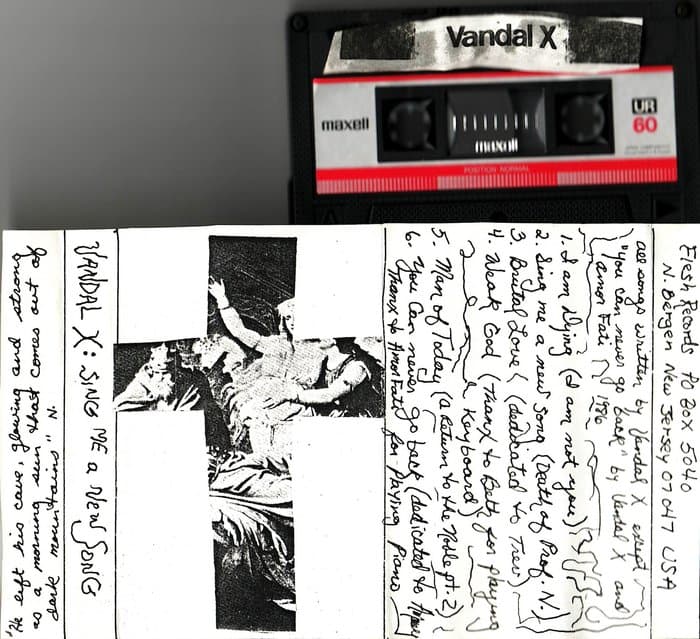 Vandal X
maxell
UR
60
maxell
POSITION NORMAL
"He left his cave, glowing and strong
as a morning sun that comes out of
dark mountains" N.
VANDAL X: SING ME a NEW SONG
1. I am Dying (I am not you)
2. Sing me a new song (Death of Prof. N.)
3. Brutal Love (dedicated to Trev)
4. Weak God (Thanx to Beth for playing
Keyboard)
5. Man of Today (a Return to the Noble pt. 2)
6. You Can never go back (dedicated to
Thanx to Amor Fati for playing Piano
all songs written by Vandal X except
"You can never go back" by Vandal X and
Amor Fati
1986
Flesh Records PO Box 5040
N. Bergen New Jersey 07047 USA